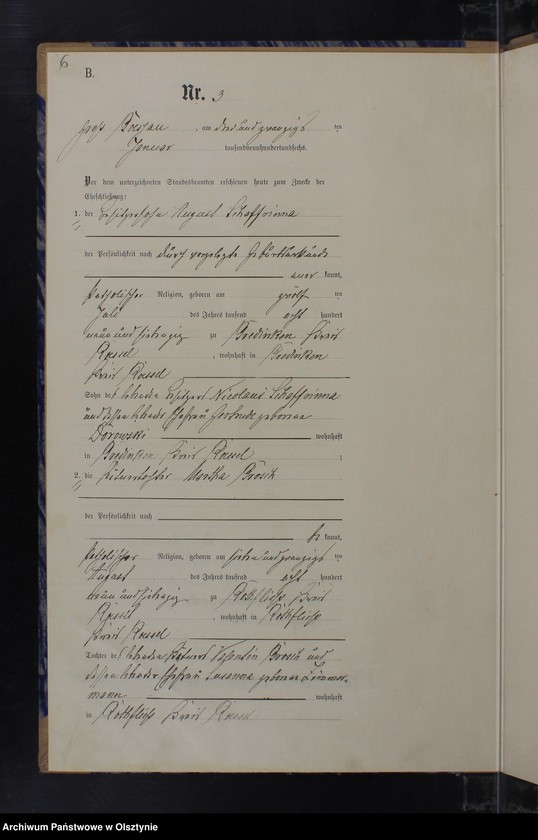 6
B.
Nr. 3
Groß Bößau, am drei und zwanzigs ten
Januar tausendneunhundertundsechs.
Vor dem unterzeichneten Standesbeamten erschienen heute zum Zwecke der
Eheschließung:
1. der Besitzersohn August Schaffrinna
der Persönlichkeit nach durch vorgelegte Geburtsurkunde
aner kannt,
katholischer Religion, geboren am zwölf ten
Juli des Jahres tausend acht hundert
neun und siebenzig zu Bredinken Kreis
Rössel, wohnhaft in Bredinken
Kreis Rössel
Sohn des Besitzers Nicolaus Schaffrinna
und dessen Ehefrau Gertrude geborene
Dorowski wohnhaft
in Bredinken Kreis Rössel;
2. die Martha Brosch
der Persönlichkeit nach
be kannt,
katholischer Religion, geboren am sieben und zwanzigs ten
August des Jahres tausend acht hundert
neun und siebenzig zu Rothfließ Kreis
Rössel, wohnhaft in Rothfließ
Kreis Rössel
Tochter des Valentin Brosch und
dessen Ehefrau Susanna geborene Zimmer-
mann wohnhaft
in Rothfließ Kreis Rössel
Archiwum Państwowe w Olsztynie